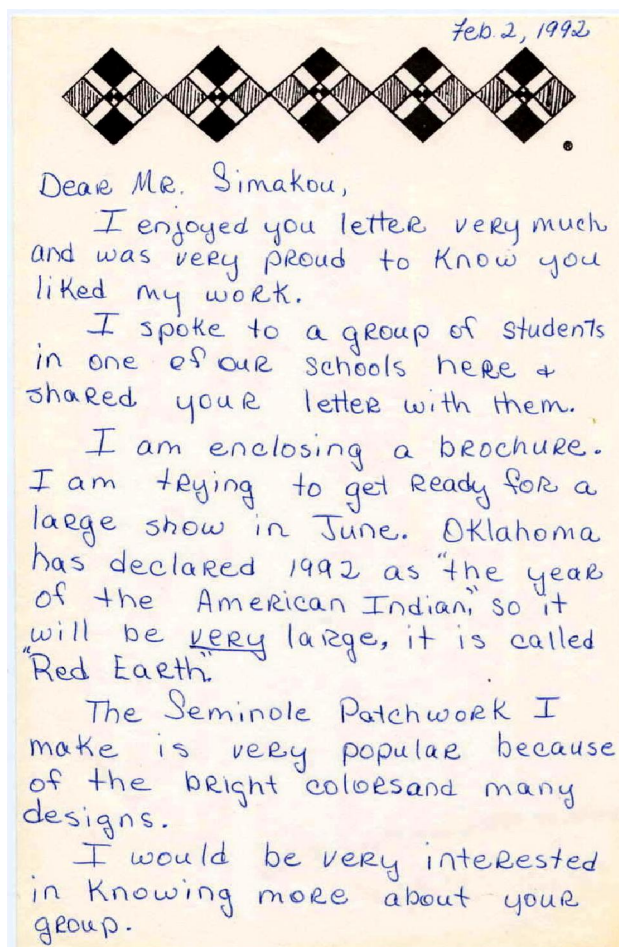 Feb. 2, 1992
®
Dear Mr. Simakou,
I enjoyed you letter very much
and was very proud to know you
liked my work.
I spoke to a group of students
in one of our schools here &
shared your letter with them.
I am enclosing a brochure.
I am trying to get ready for a
large show in June. Oklahoma
has declared 1992 as "the year
of the American Indian," so it
will be very large, it is called
"Red Earth".
The Seminole Patchwork I
make is very popular because
of the bright colorsand many
designs.
I would be very interested
in knowing more about your
group.